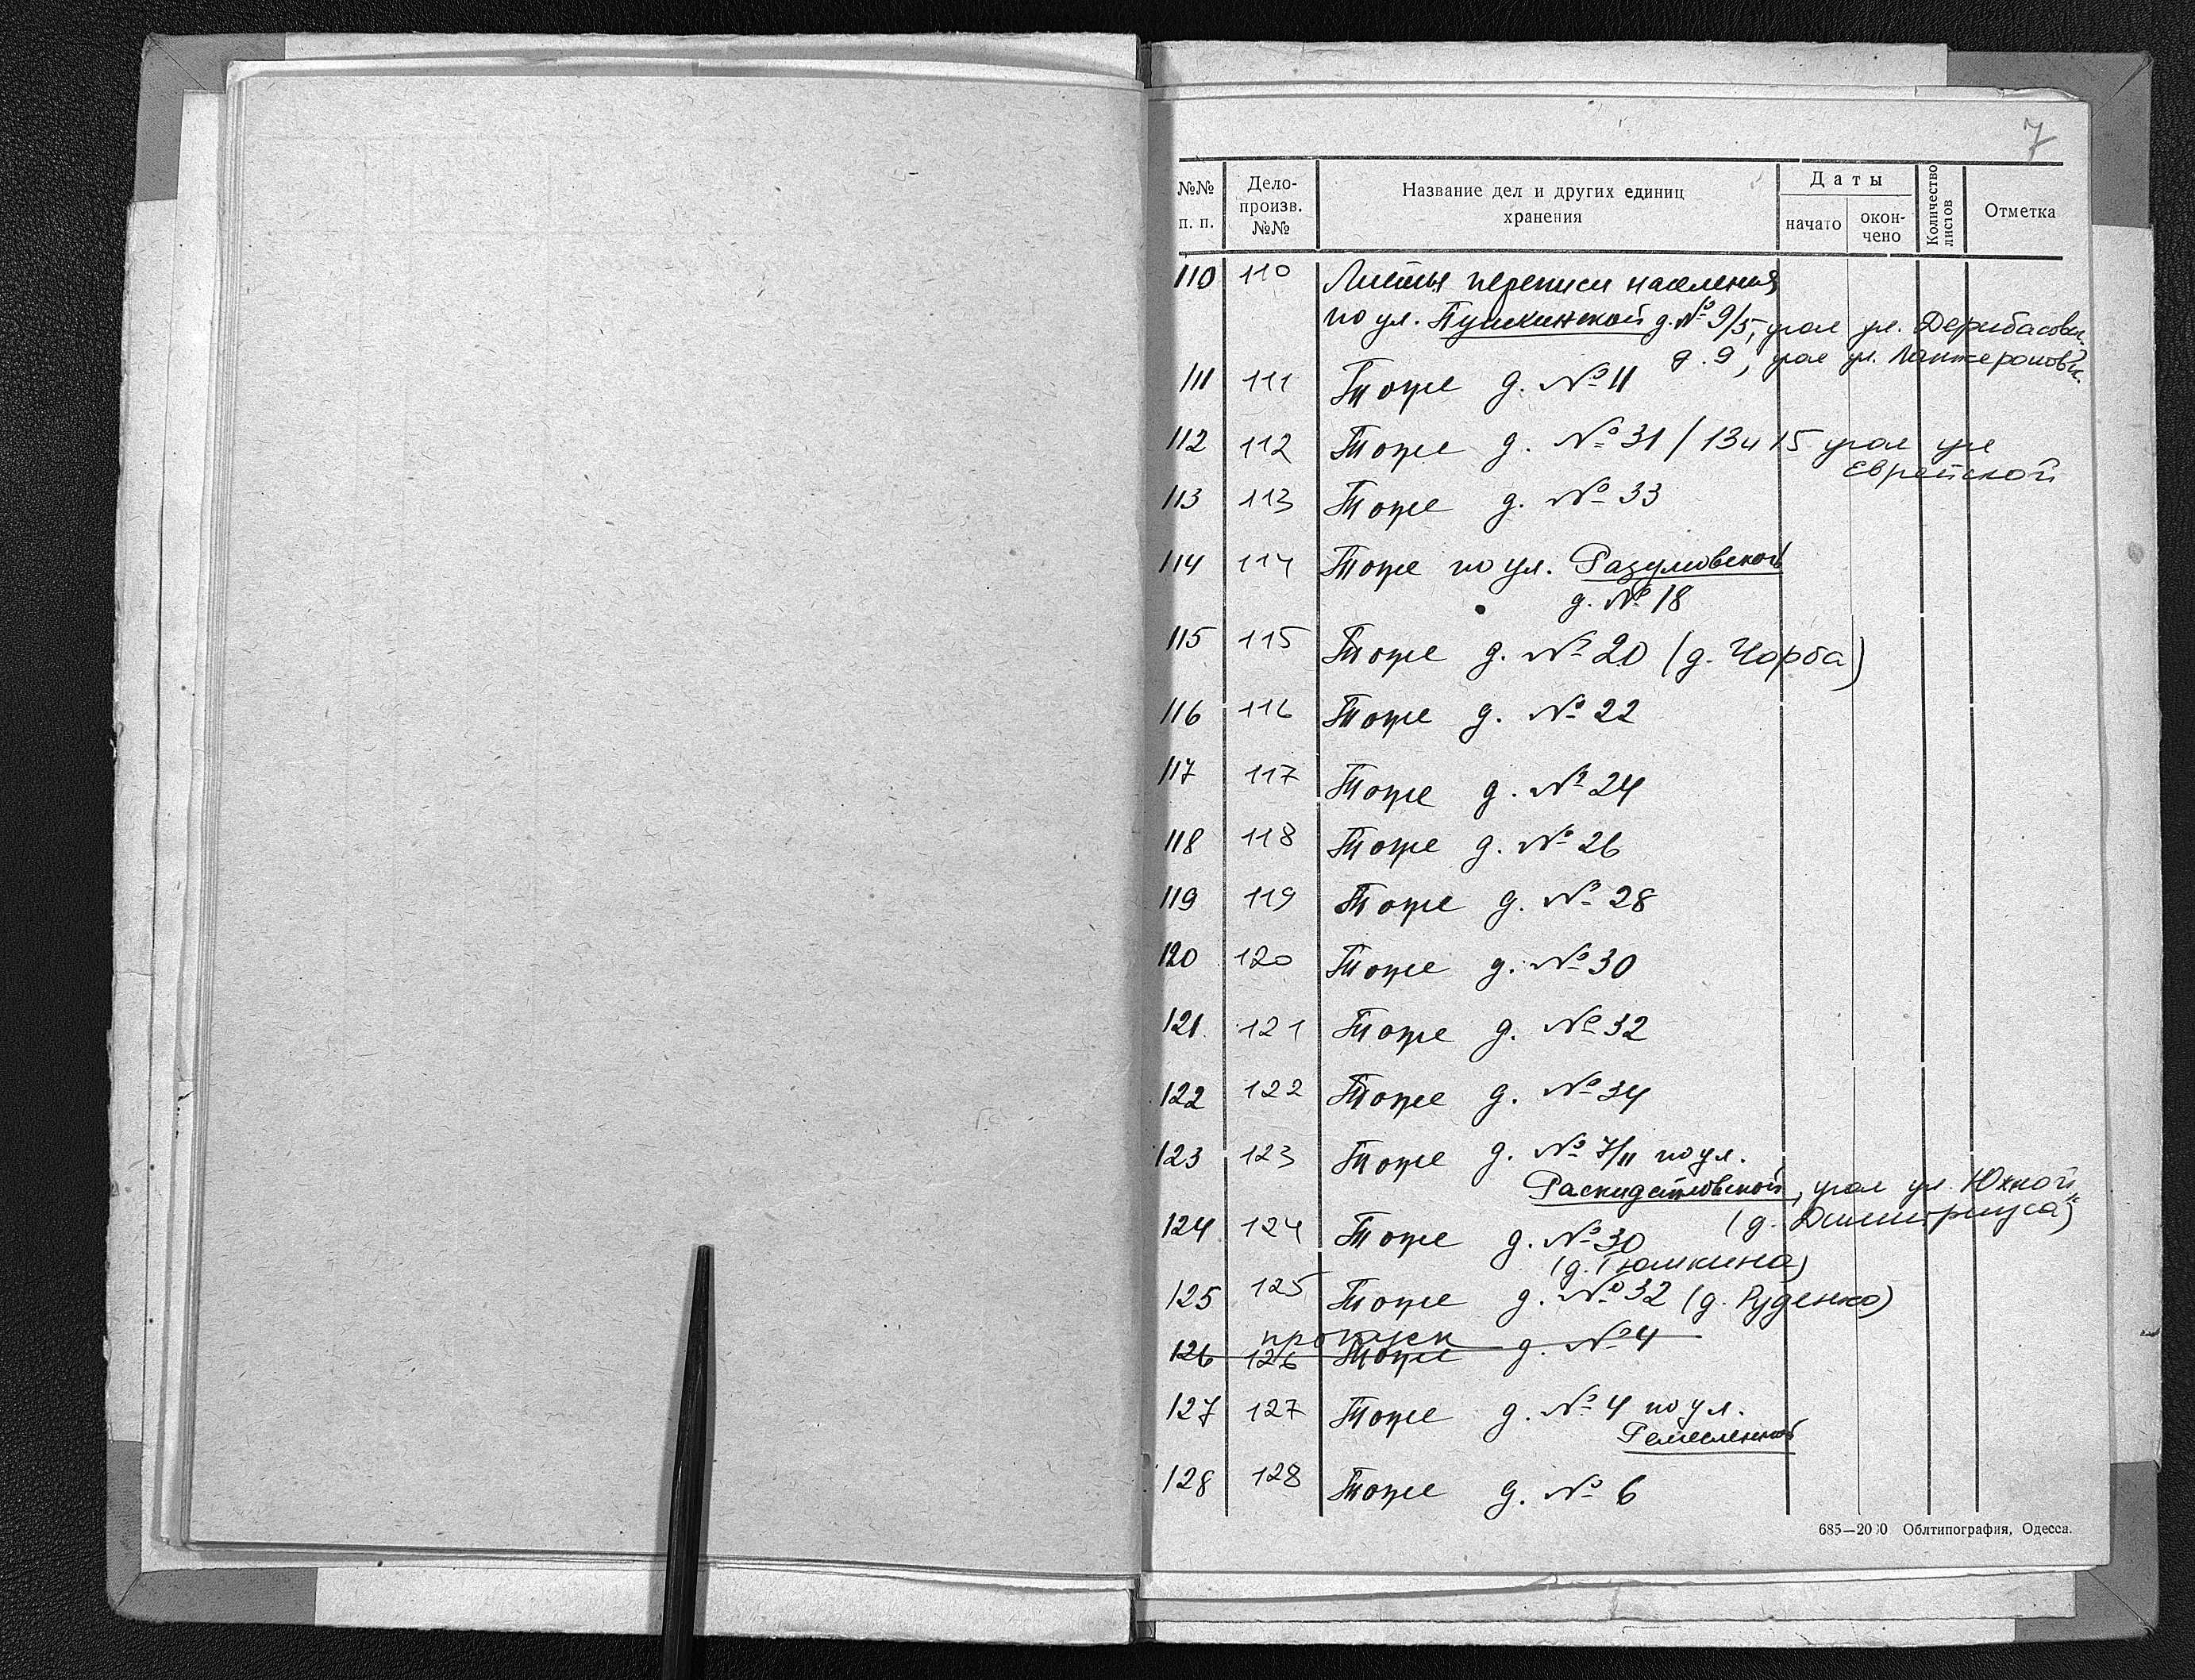 7
№№ п. п. Дело- произв. №№ Название дел и других единиц хранения Даты начато окон- чено Количество листов Отметка
110 110 Листы переписи населения
по ул. Пушкинской д. № 9/5, угол ул. Дерибасовск.
д. 9, угол ул. Ланжероновск.
111 111 Тоже д. № 11
112 112 Тоже д. № 31 / 13 и 15 угол ул
Еврейской
113 113 Тоже д. № 33
114 114 Тоже по ул. Разумовской
д. № 18
115 115 Тоже д. № 20 (д. Чорба)
116 116 Тоже д. № 22
117 117 Тоже д. № 24
118 118 Тоже д. № 26
119 119 Тоже д. № 28
120 120 Тоже д. № 30
121 121 Тоже д. № 32
122 122 Тоже д. № 34
123 123 Тоже д. № 7/11 по ул.
Раскидайловской, угол ул. Южной
(д. Димитриуса)
124 124 Тоже д. № 30
(д. Тюмкина)
125 125 Тоже д. № 32 (д. Руденко)
пропуск
126 126 Тоже д. № 4
127 127 Тоже д. № 4 по ул.
Ремесленной
128 128 Тоже д. № 6
Облтипография, Одесса.